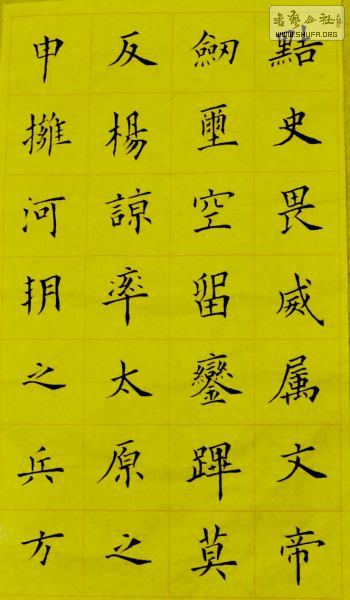 黠史畏威属文帝
劔璽空留鑾蹕莫
反楊諒率太原之
申擁河朔之兵方
書藝公社
WWW.SHUFA.ORG